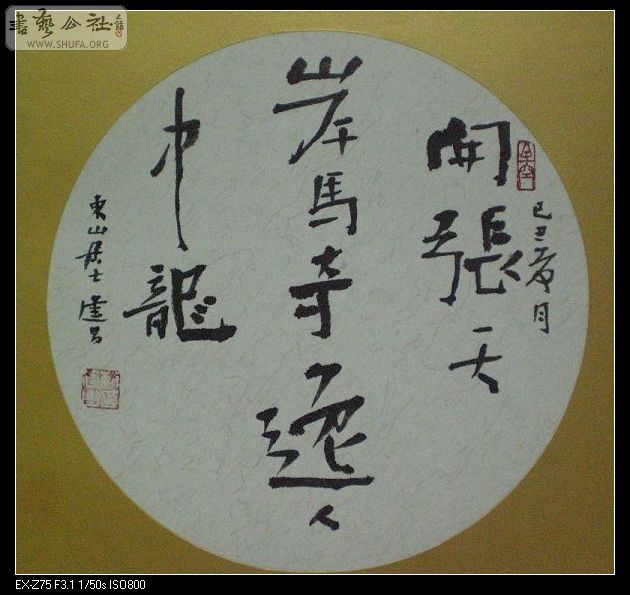 書藝公社
WWW.SHUFA.ORG
己丑夏月
開張天
岸馬奇逸人
中龍
東山居士
EX-Z75 F3.1 1/50s ISO800